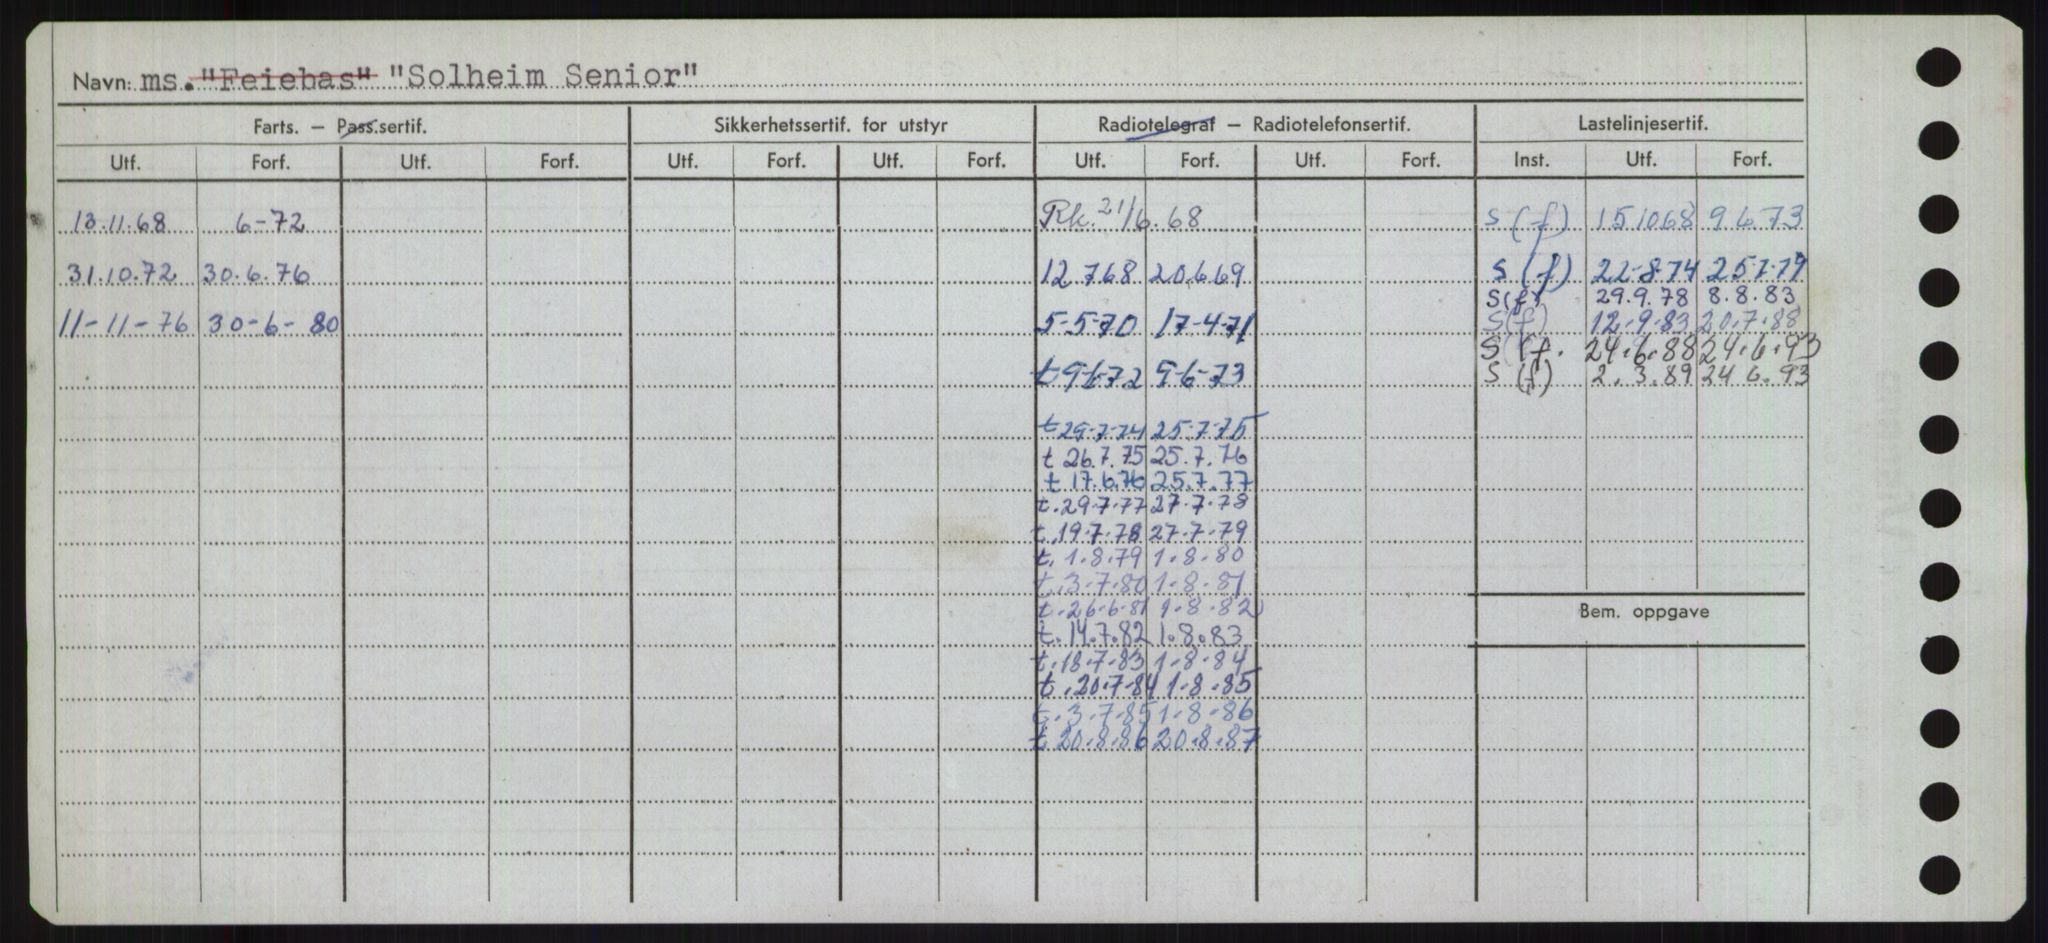 Navn: ms. "Feiebas" "Solheim Senior"
Farts. – Pass.sertif. Sikkerhetssertif. for utstyr Radiotelegraf – Radiotelefonsertif. Lastelinjesertif.
Utf. Forf. Utf. Forf. Utf. Forf. Utf. Forf. Utf. Forf. Utf. Forf. Inst. Utf. Forf.
13.11.68 6-72 Rk. 21/6.68 S (f) 15 10 68 9 6.73
31.10.72 30.6.76 12 7 68 20.6.69 S (f) 22-8-74 25-7-79
S(f) 29.9.78 8.8.83
11-11-76 30-6-80 5-5-70 17-4-71 S(f) 12.9.83 20.7.88
S (f. 24.6.88 24.6.93
t 9-6-72 9-6-73 S (f) 2.3.89 24 6.93
t 29-7-74 25-7-75
t 26.7.75 25.7.76
t 17.6.76 25.7.77
t.29-7-77 27-7-78
t.19-7-78 27-7-79
t.1.8.79 1.8.80
t.3-7-80 1-8-81
t.26-6-81 1-8-82
t.14.7.82 1.8.83
t.18-7-83 1-8-84
t.20-7-84 1-8-85
t.3-7-85 1-8-86
t 20.8.86 20.8.87
Bem. oppgave